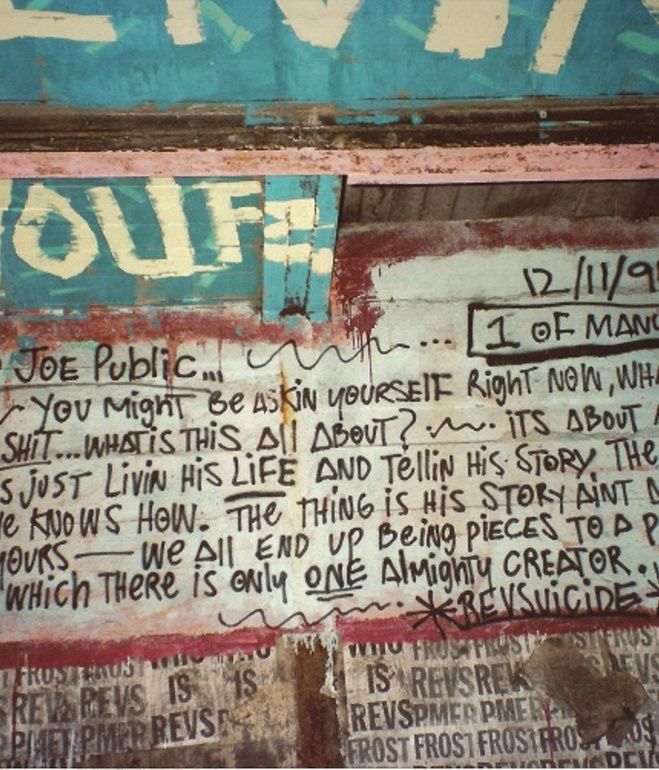 YOUR
12/11/9
1 OF MAN
JOE PUBLIC...
YOU MIGHT BE ASKIN YOURSELF RIGHT NOW, WHA
SHIT... WHAT IS THIS All ABOUT? ITS ABOUT
S JUST LIVIN HIS LIFE AND TELLIN HIS STORY THE
HE KNOWS HOW. THE THING IS HIS STORY AINT
YOURS — WE All END UP BEING PIECES TO A P
WHICH THERE IS ONLY ONE AlMIGHTY CREATOR.
*REVSUICIDE*
FROST FROST WHO WHO
REVS REVS IS IS
PMER PMER REVS
WHO FROST FROST FROST
IS REVS REVS REVS
REVS PMER PMER
FROST FROST FROST FROST FROST